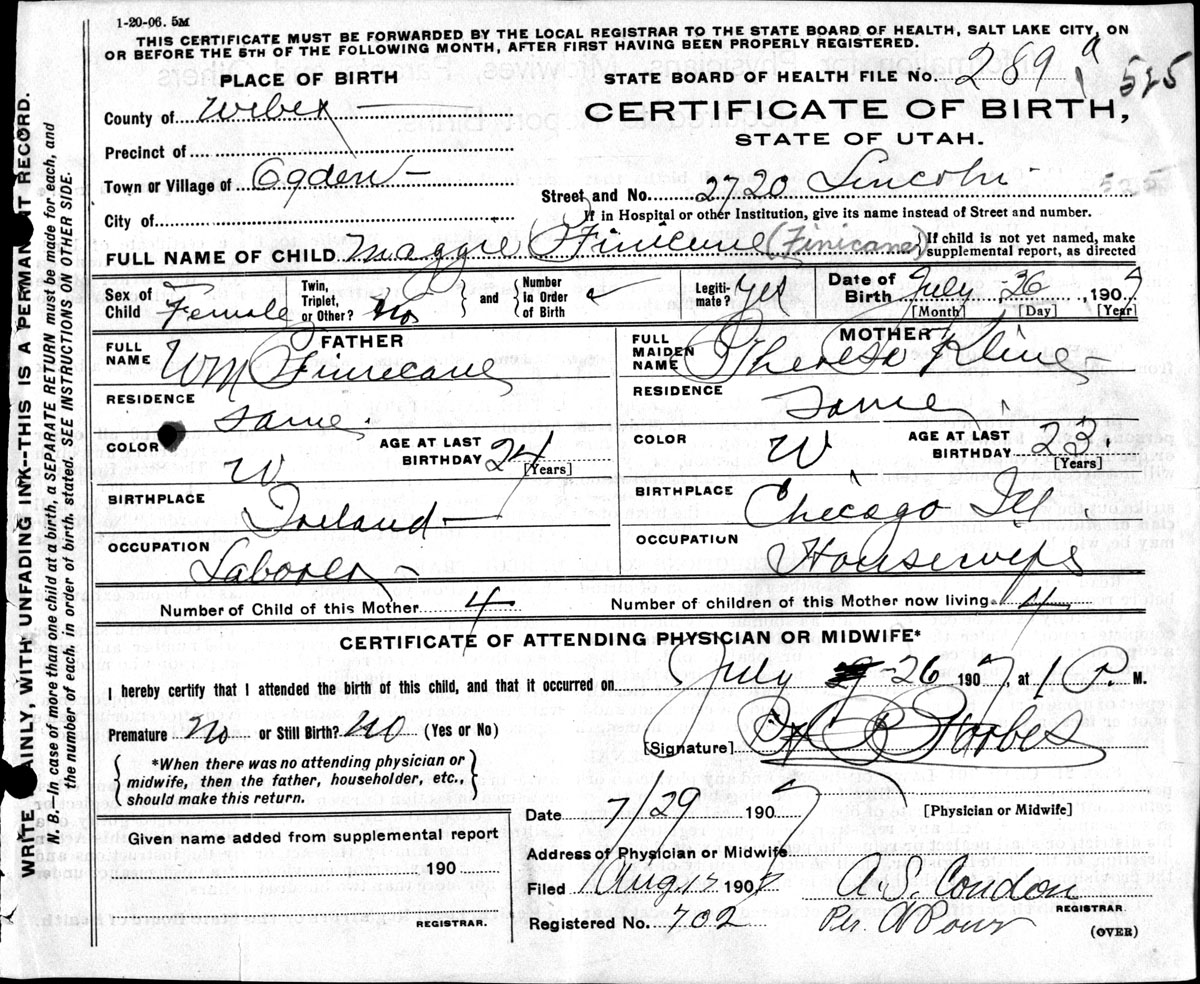 1-20-06. 5M
THIS CERTIFICATE MUST BE FORWARDED BY THE LOCAL REGISTRAR TO THE STATE BOARD OF HEALTH, SALT LAKE CITY, ON
OR BEFORE THE 5TH OF THE FOLLOWING MONTH, AFTER FIRST HAVING BEEN PROPERLY REGISTERED.
PLACE OF BIRTH
STATE BOARD OF HEALTH FILE No. 289 a 525
County of Weber
CERTIFICATE OF BIRTH,
STATE OF UTAH.
Precinct of
Town or Village of Ogden
Street and No. 2720 Lincoln 525
City of
If in Hospital or other Institution, give its name instead of Street and number.
FULL NAME OF CHILD Maggie Finicane (Finicane) If child is not yet named, make supplemental report, as directed
Sex of Child Female Twin, Triplet, or Other? No and Number in Order of Birth Legiti-mate? Yes Date of Birth July 26, 1907
[Month] [Day] [Year]
FATHER
MOTHER
FULL NAME Wm Finicane
FULL MAIDEN NAME Theresa Kline
RESIDENCE Same
RESIDENCE Same
COLOR W AGE AT LAST BIRTHDAY 24 [Years]
COLOR W AGE AT LAST BIRTHDAY 23. [Years]
BIRTHPLACE Ireland
BIRTHPLACE Chicago Ill
OCCUPATION Laborer
OCCUPATION Housewife
Number of Child of this Mother 4
Number of children of this Mother now living 4
CERTIFICATE OF ATTENDING PHYSICIAN OR MIDWIFE*
I hereby certify that I attended the birth of this child, and that it occurred on July 26 1907, at 1 P M.
Premature No or Still Birth? No (Yes or No)
[Signature] Forbes
*When there was no attending physician or
midwife, then the father, householder, etc.,
should make this return.
Date 7/29 1907
[Physician or Midwife]
Given name added from supplemental report
190
REGISTRAR.
Address of Physician or Midwife
Filed Aug 1907 A.S. Condon
REGISTRAR
Registered No. 702 Per.
(OVER)
WRITE PLAINLY, WITH UNFADING INK--THIS IS A PERMANENT RECORD.
N. B. In case of more than one child at a birth, a SEPARATE RETURN must be made for each, and
the number of each, in order of birth, stated. SEE INSTRUCTIONS ON OTHER SIDE.